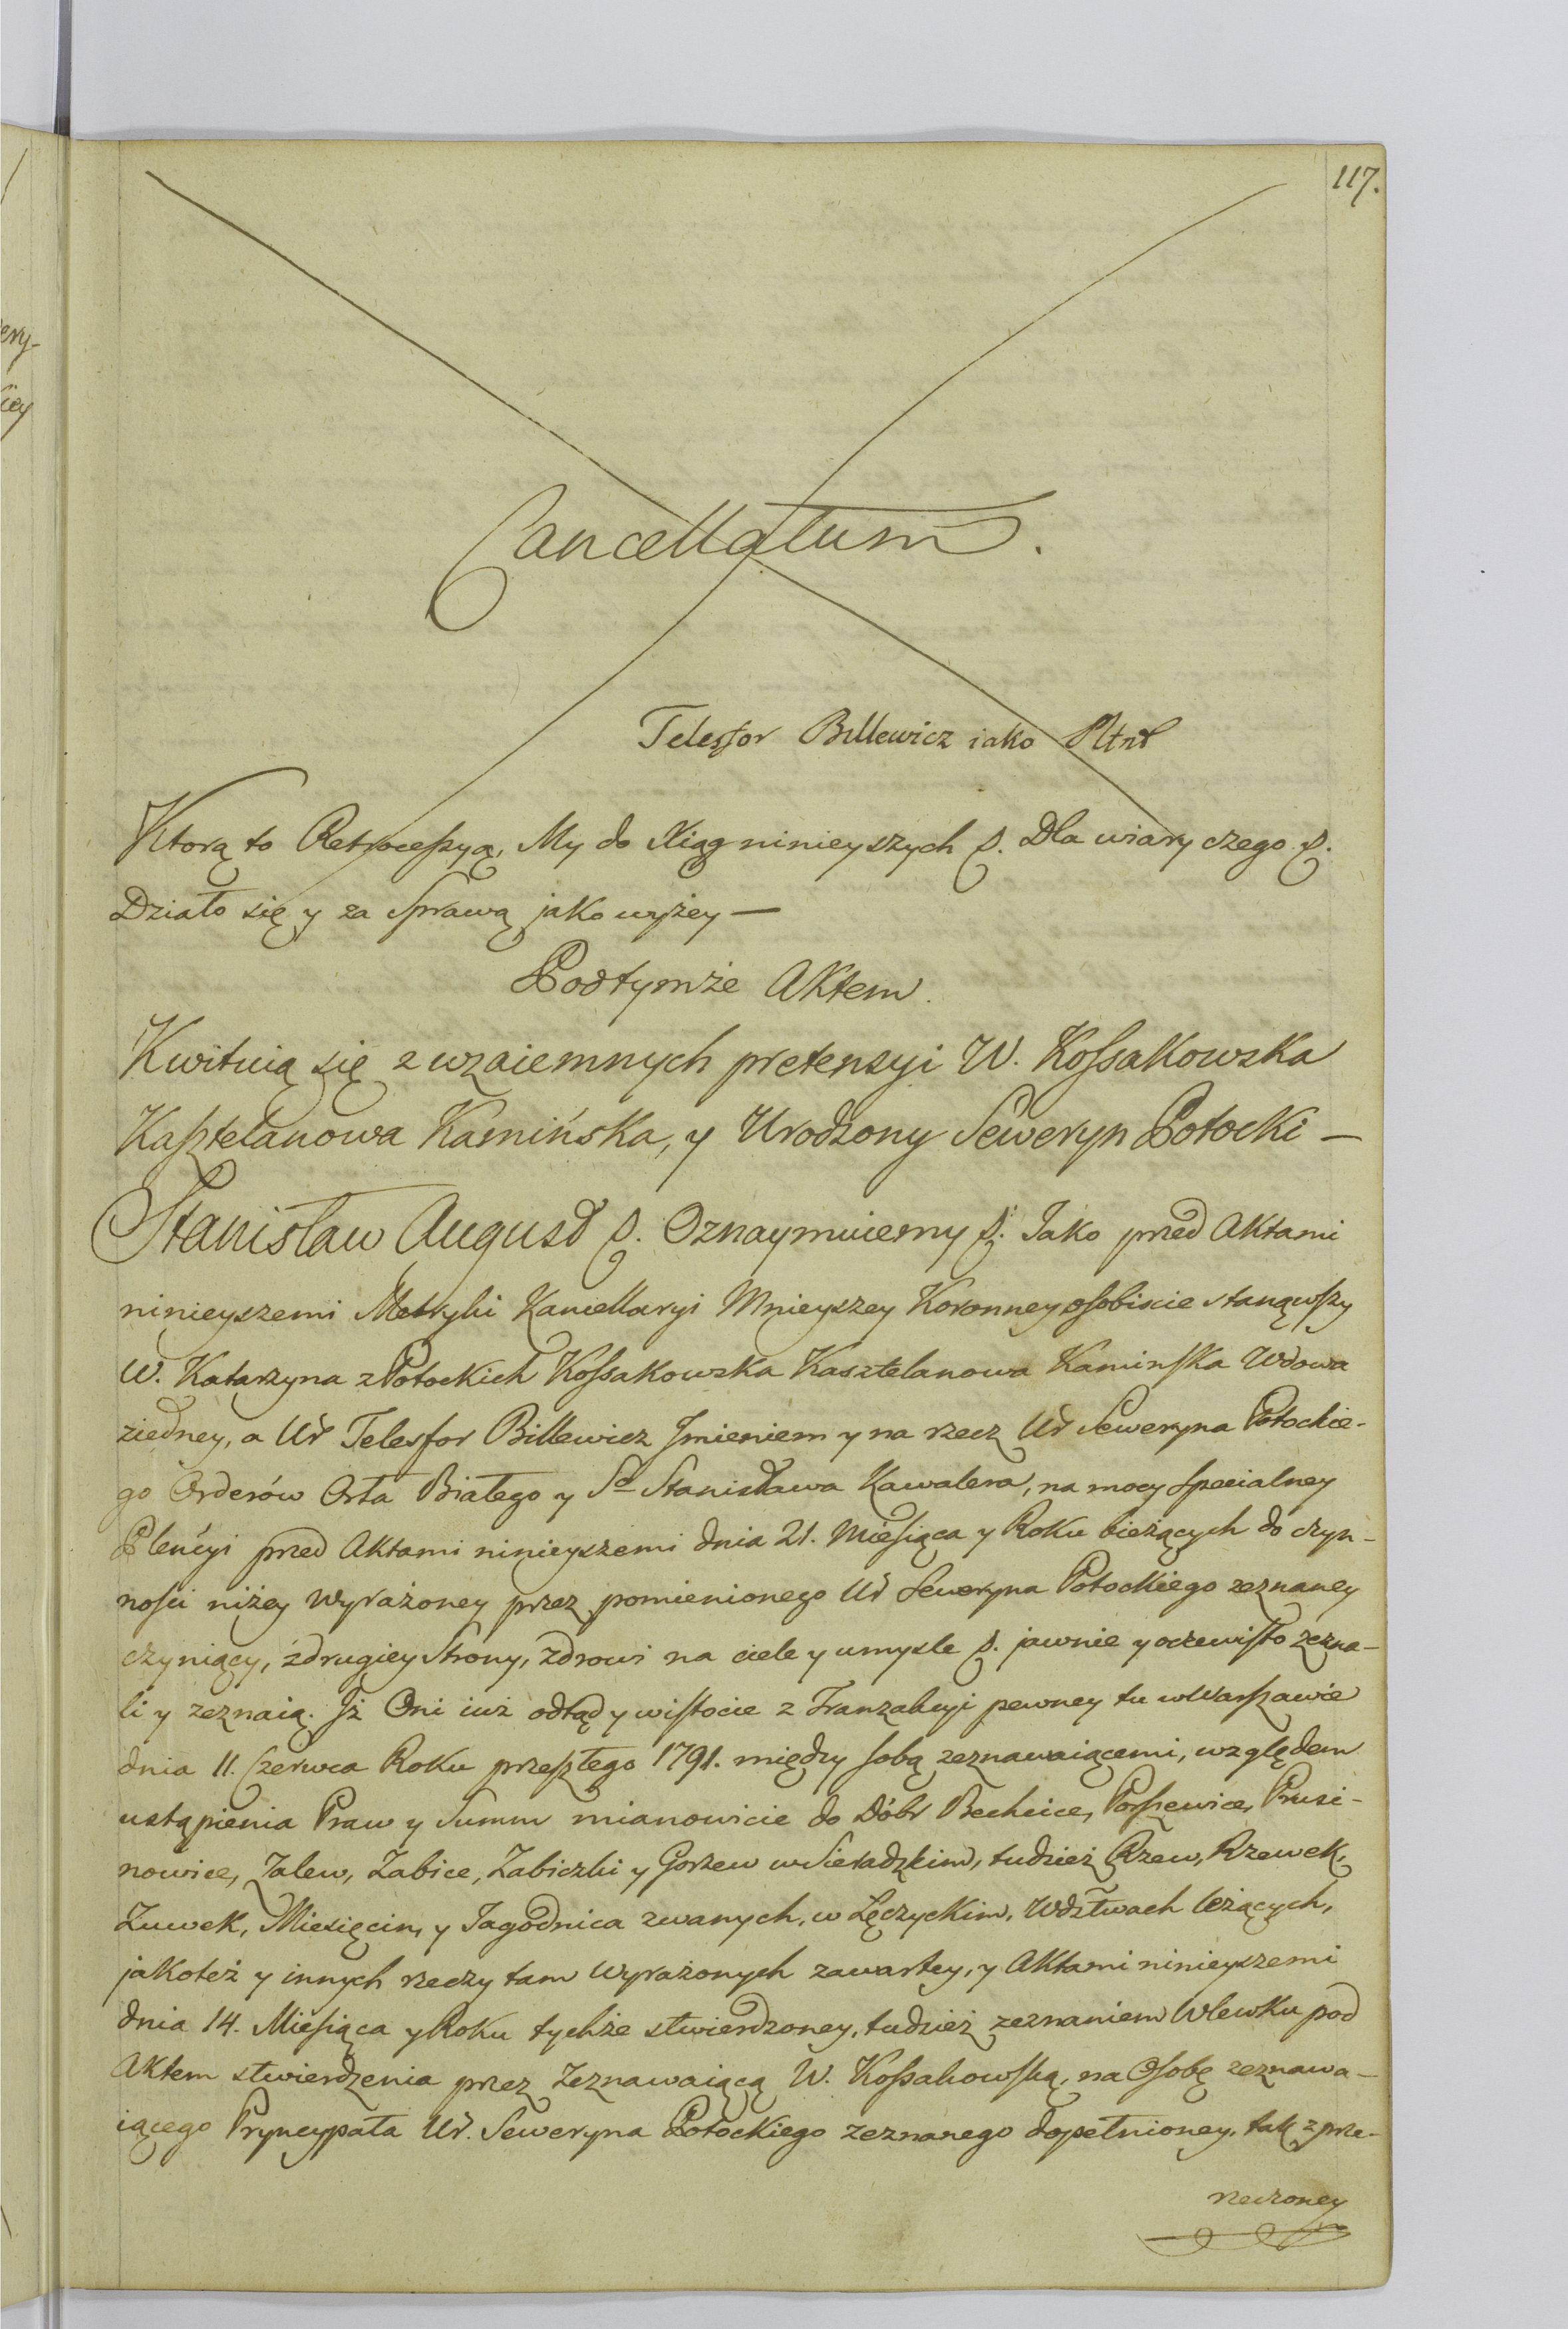 117.
Cancellatum.
Telesfor Billewicz iako Pltnt
Ktorą to Retrocessyą, My do Xiąg ninieyszych p. Dla wiary czego p.
Działo się y za sprawą jako wyżey —
Pod tymże Aktem.
Kwituią się z wzaiemnych pretensyi W. Kossakowska
Kasztelanowa Kamińska, y Urodzony Seweryn Potocki —
Stanisław August p. Oznaymuiemy p. Jako przed Aktami
ninieyszemi Metryki Kancellaryi Mnieyszey Koronney osobiscie stanąwszy
W. Katarzyna z Potockich Kossakowska Kasztelanowa Kaminska Wdowa
ziedney, a Ur Telesfor Billewicz Jmieniem y na rzecz Ur Seweryna Potockie-
go Orderów Orła Białego y Sº Stanisława Kawalera, na mocy specialney
Plencyi przed Aktami ninieyszemi dnia 21. Miesiąca y Roku bieżących do czyn-
nosci niżey wyrażoney przez pomienionego Ur Seweryna Potockiego zeznaney
czyniący, z drugiey strony, zdrowi na ciele y umysle p. jawnie y oczewisto zezna-
li y zeznaią. Jż Oni iuż odtąd y wistocie z Tranzakcyi pewney tu w Warszawie
dnia 11. Czerwca Roku przeszłego 1791. między sobą zeznawaiącemi, względem
ustąpienia Praw y Summ mianowicie do Dóbr Bechcice, Porszewice, Prusi-
nowice, Jalew, Żabice, Żabiczki y Gorzew w Sieradzkim, tudzież Rzew, Rzewek,
Żuwek, Miesięcin, y Jagodnica zwanych, w Łęczyckim, Wdztwach leżących,
jakoteż y innych rzeczy tam wyrażonych zawartey, y Aktami ninieyszemi
dnia 14. Miesiąca y Roku tychże stwierdzoney, tudzież zeznaniem Wlewku pod
Aktem stwierdzenia przez Zeznawaiącą W. Kossakowską, na Osobę zeznawa-
iącego Pryncypała Ur. Seweryna Potockiego zeznanego dopełnioney, tak z prze-
rzeczoney